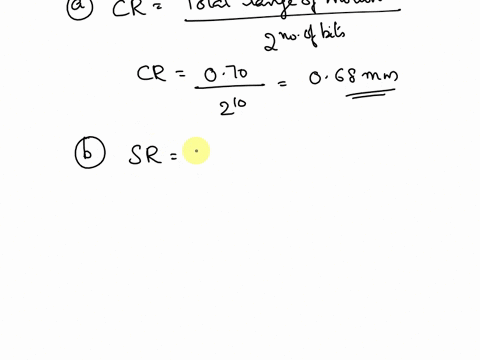 a CR = Total range of motion
2 no. of bits
CR = 0.70 / 2^10 = 0.68 mm
b SR =